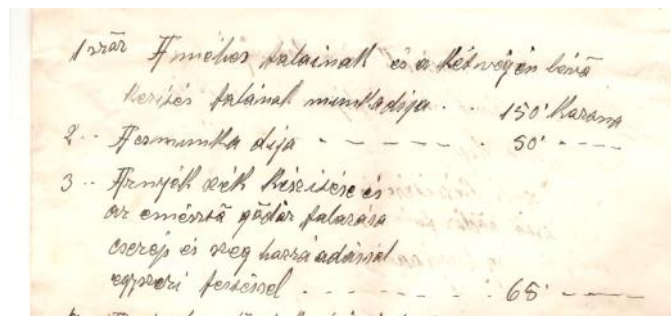 1 ször A méhes falainak és a két végén lévő
kerítés falának munkadija . . 150' Korona
2 .. Ácsmunka dija - - - - - 50' - - - -
3 .. Árnyék szék készitése és
az emésztő gödör falazása
cserép és szeg hozzá adással
egyszeri festéssel - - - - - - 68' - - - -